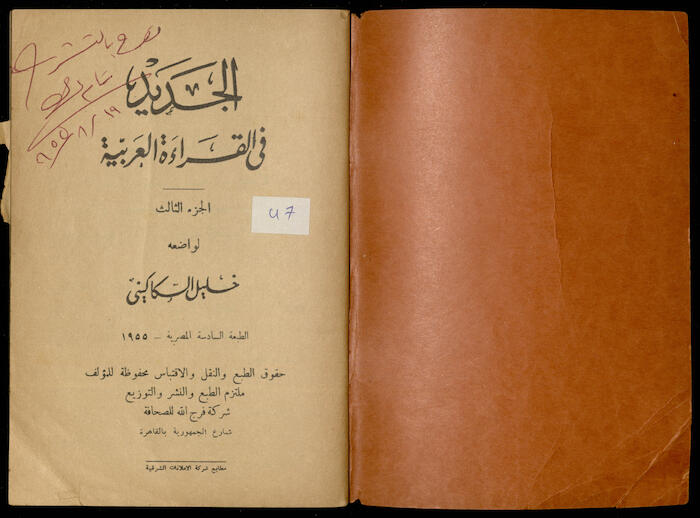 الجديد
في القراءة العربية
الجزء الثالث
u7
لواضعه
خليل السكاكيني
الطبعة السادسة المصرية – ١٩٥٥
حقوق الطبع والنقل والاقتباس محفوظة للمؤلف
ملتزم الطبع والنشر والتوزيع
شركة فرج الله للصحافة
شارع الجمهورية بالقاهرة
مطابع شركة الاعلانات الشرقية